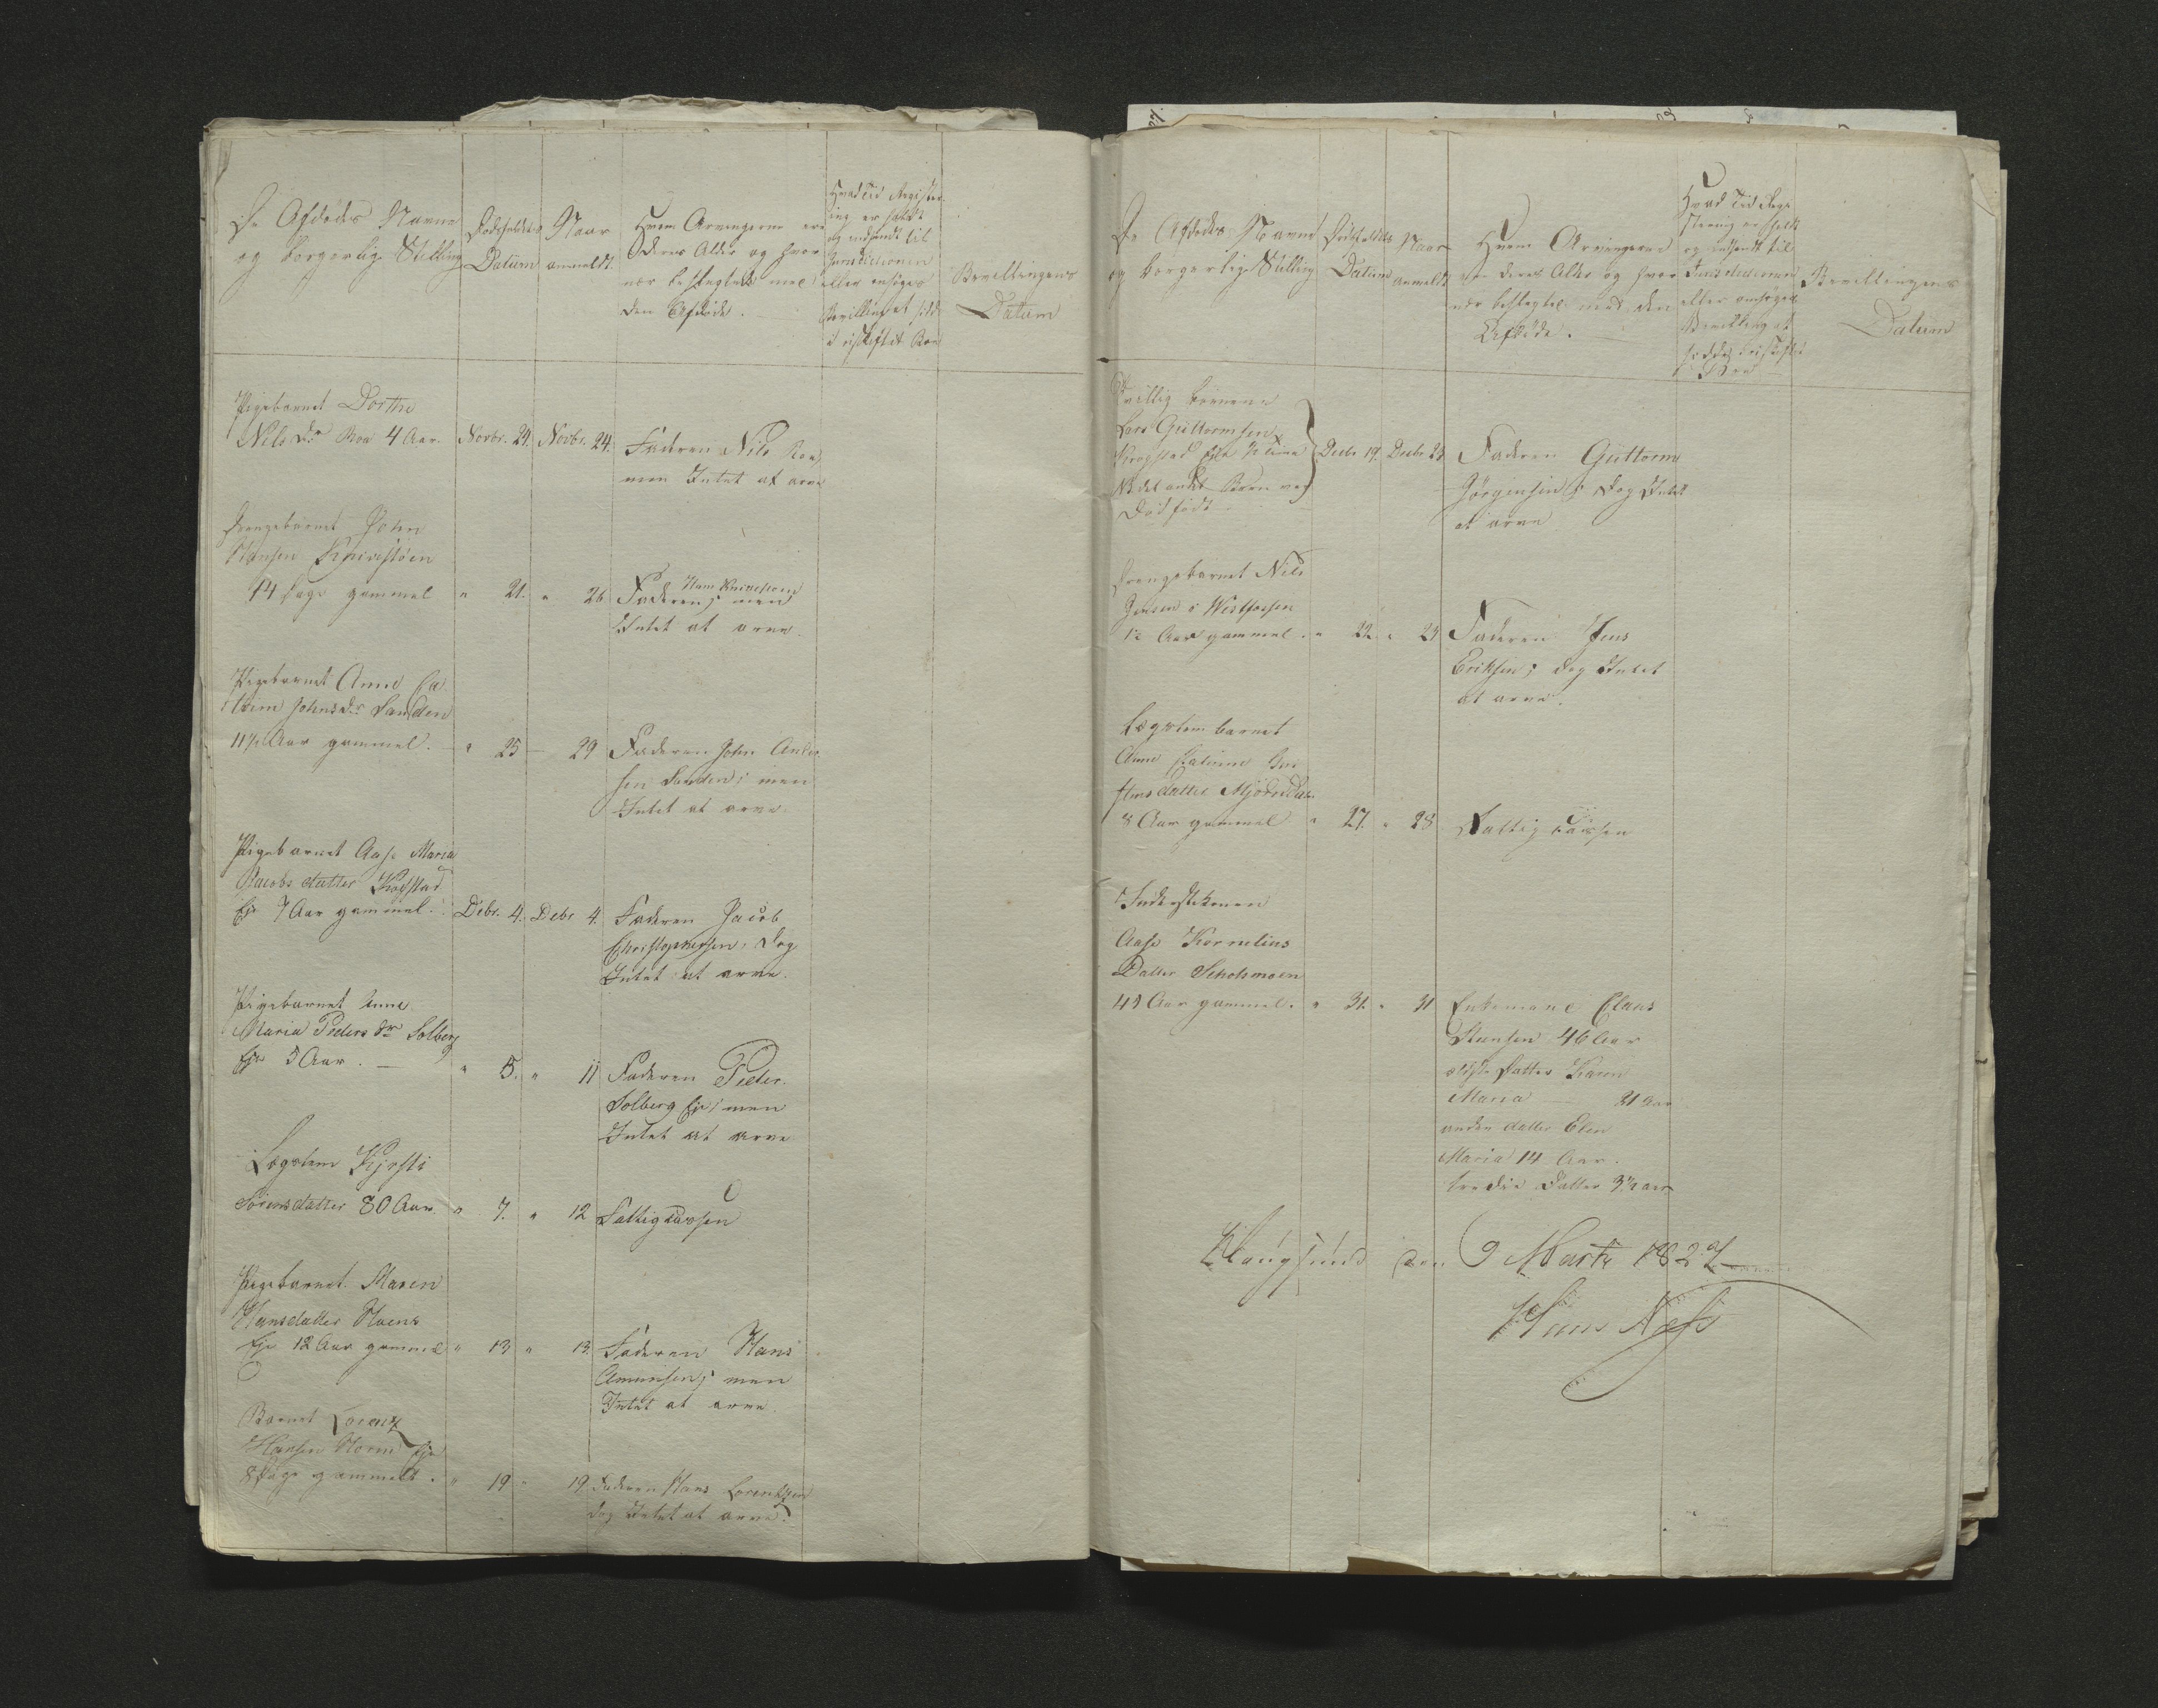 De Afdødes Navne
og borgerlige Stilling
Dødsfaldets
Datum
Naar
anmeldt.
Hvem Arvingerne ere
Deres Alder og hvor
nær beslægtede med
den Afdøde.
Hvad Tid Registre
ing er holdt
og indsendt til
Jurisdictionen
eller ansøges
Bevilling at sidde
i uskiftet Boe
Bevillingens
Datum
Pigebarnet Dorthe
Nils Dr Roa 4 Aar. Novbr. 24. Novbr. 24.
Faderen Nils Roa,
men Intet at arve
Drengebarnet John
Hansen Knivestøen
14 Dage gammel " 21. " 26 Faderen Hans Knivestøen; men
Intet at arve.
Pigebarnet Anne Ca
trine Johnsdr Sanden
11½ Aar gammel. " 25 — 29 Faderen JohnAnder
sen Sanden; men
Intet at arve.
Pigebarnet Aase Maria
Jacobs datter Krogstad
Eje 7 Aar gammel. Debr. 4. Debr 4. Faderen Jacob
Christophersen; dog
Intet at arve.
Pigebarnet Anne
Maria Peders Dr Solberg
Eje 5 Aar. — " 5. " 11 Faderen Peder
Solberg Eje; men
Intet at arve
Lægslem Kjersti
Sørensdatter 80 Aar. " 7. " 12 Fattigkassen
Pigebarnet Maren
Hansdatter Hoens
Eje 12 Aar gammel " 13 " 13. Faderen Hans
Amunsen; men
Intet at arve.
Barnet Lorentz
Hansen Horne Eje
8 Dage gammelt. " 19 " 19 Faderen Hans Lorentzen
dog Intet at arve.
De Afdødes Navne
og borgerlige Stilling
Dødsfaldets
Datum
Naar
anmeldt
Hvem Arvingerne
ere deres Alder og hvor
nær beslægtet med den
Afdøde.
Hvad Tid Regi
strering er holdt
og indsendt til
Jurisdictionen
eller ansøges
Bevilling at
sidde i uskiftet
Boe
Bevillingens
Datum
Tvillig børnene
Lars Guttormsen
Krogstad Eje ½ Time
NB det andet Barn var
Dødfødt
Decbr 19. Decbr 23 Faderen Guttorm
Jørgensen; dog Intet
at arve
Drengebarnet Nils
Jensen i Westfossen
12 Aar gammel. " 22. " 23 Faderen Jens
Eriksen; dog Intet
at arve.
Lægslem barnet
Anne Catrine
datter
8 Aar gammel " 27. " 28 Fattig kassen
Inderstkonen
Aase Kornelius
Datter
49 Aar gammel. " 31. " 31 Enkemand Claus
Hansen 46 Aar
ældste Datter Karen
Maria — 21 Aar
anden datter Elen
Maria 14 Aar.
tredie Datter 3½ Aar
Haugsund den 9 Marts 1822
Hans Næss